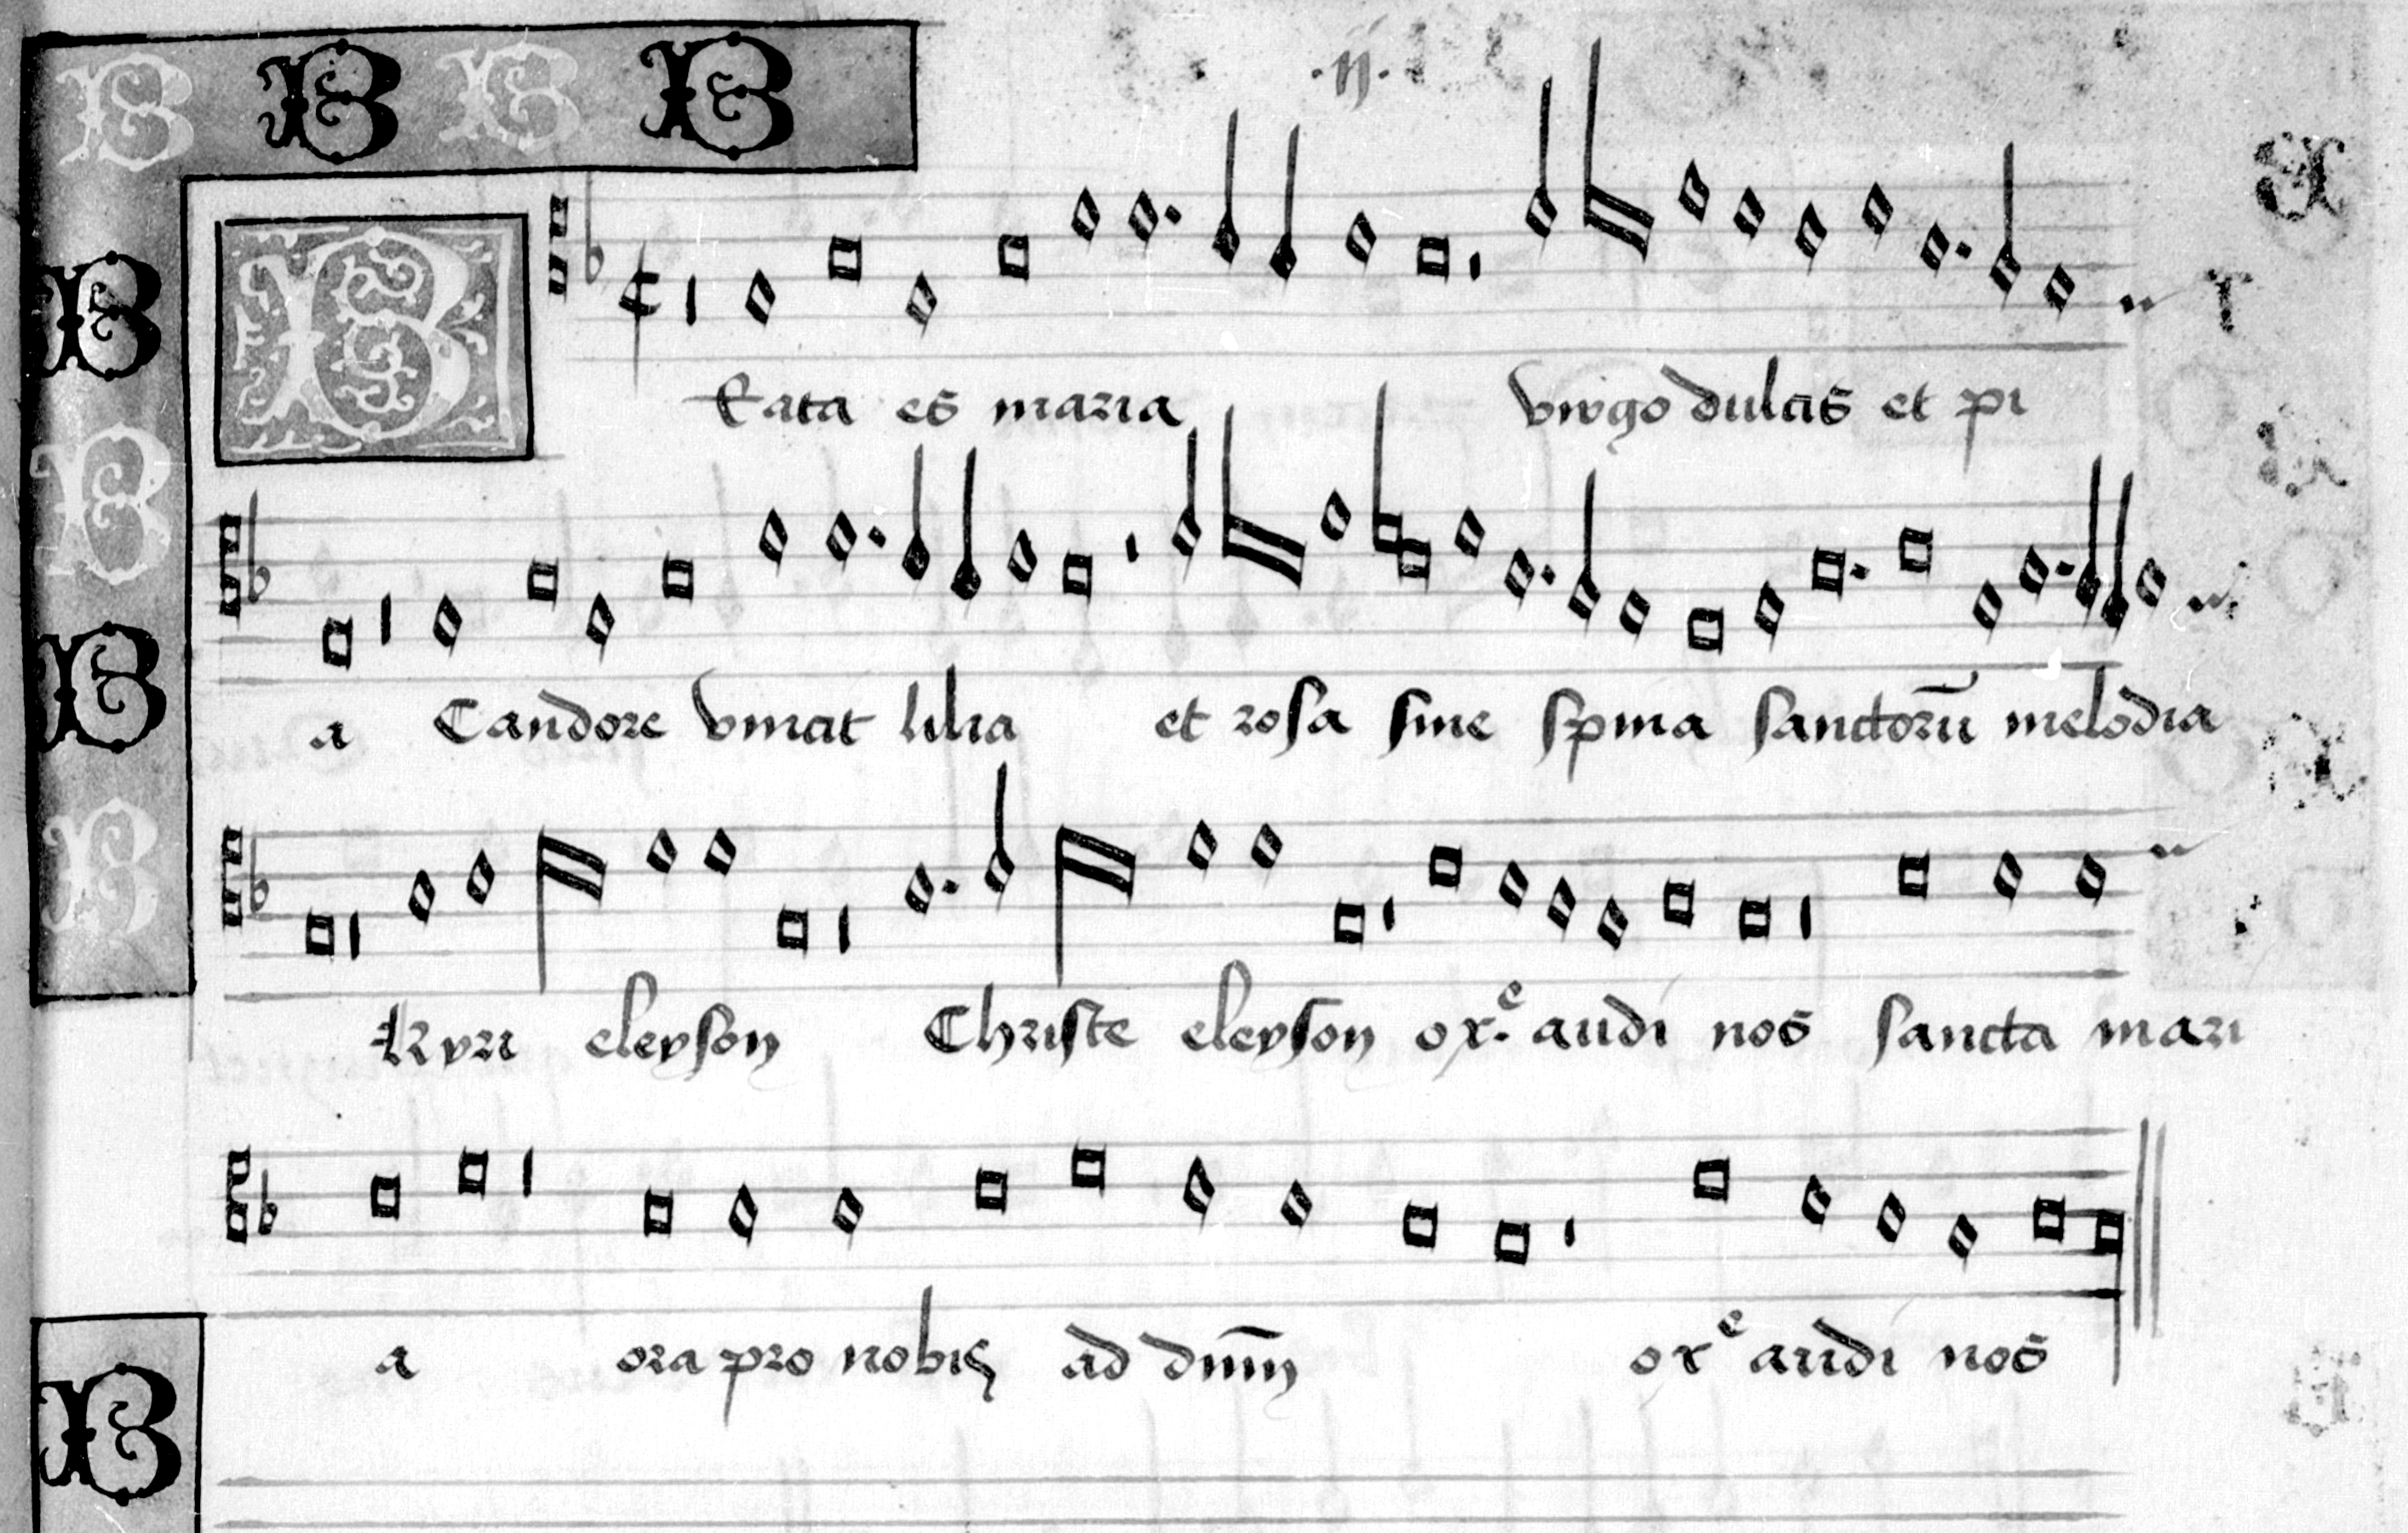 .ij.
BEata es maria virgo dulcis et pi
a Candore vincit lilia et rosa sine spina sanctorū melodia
Kyri eleyson Christe eleyson o xᵉ audi nos sancta mari
a ora pro nobis ad dn̄m o xᵉ audi nos